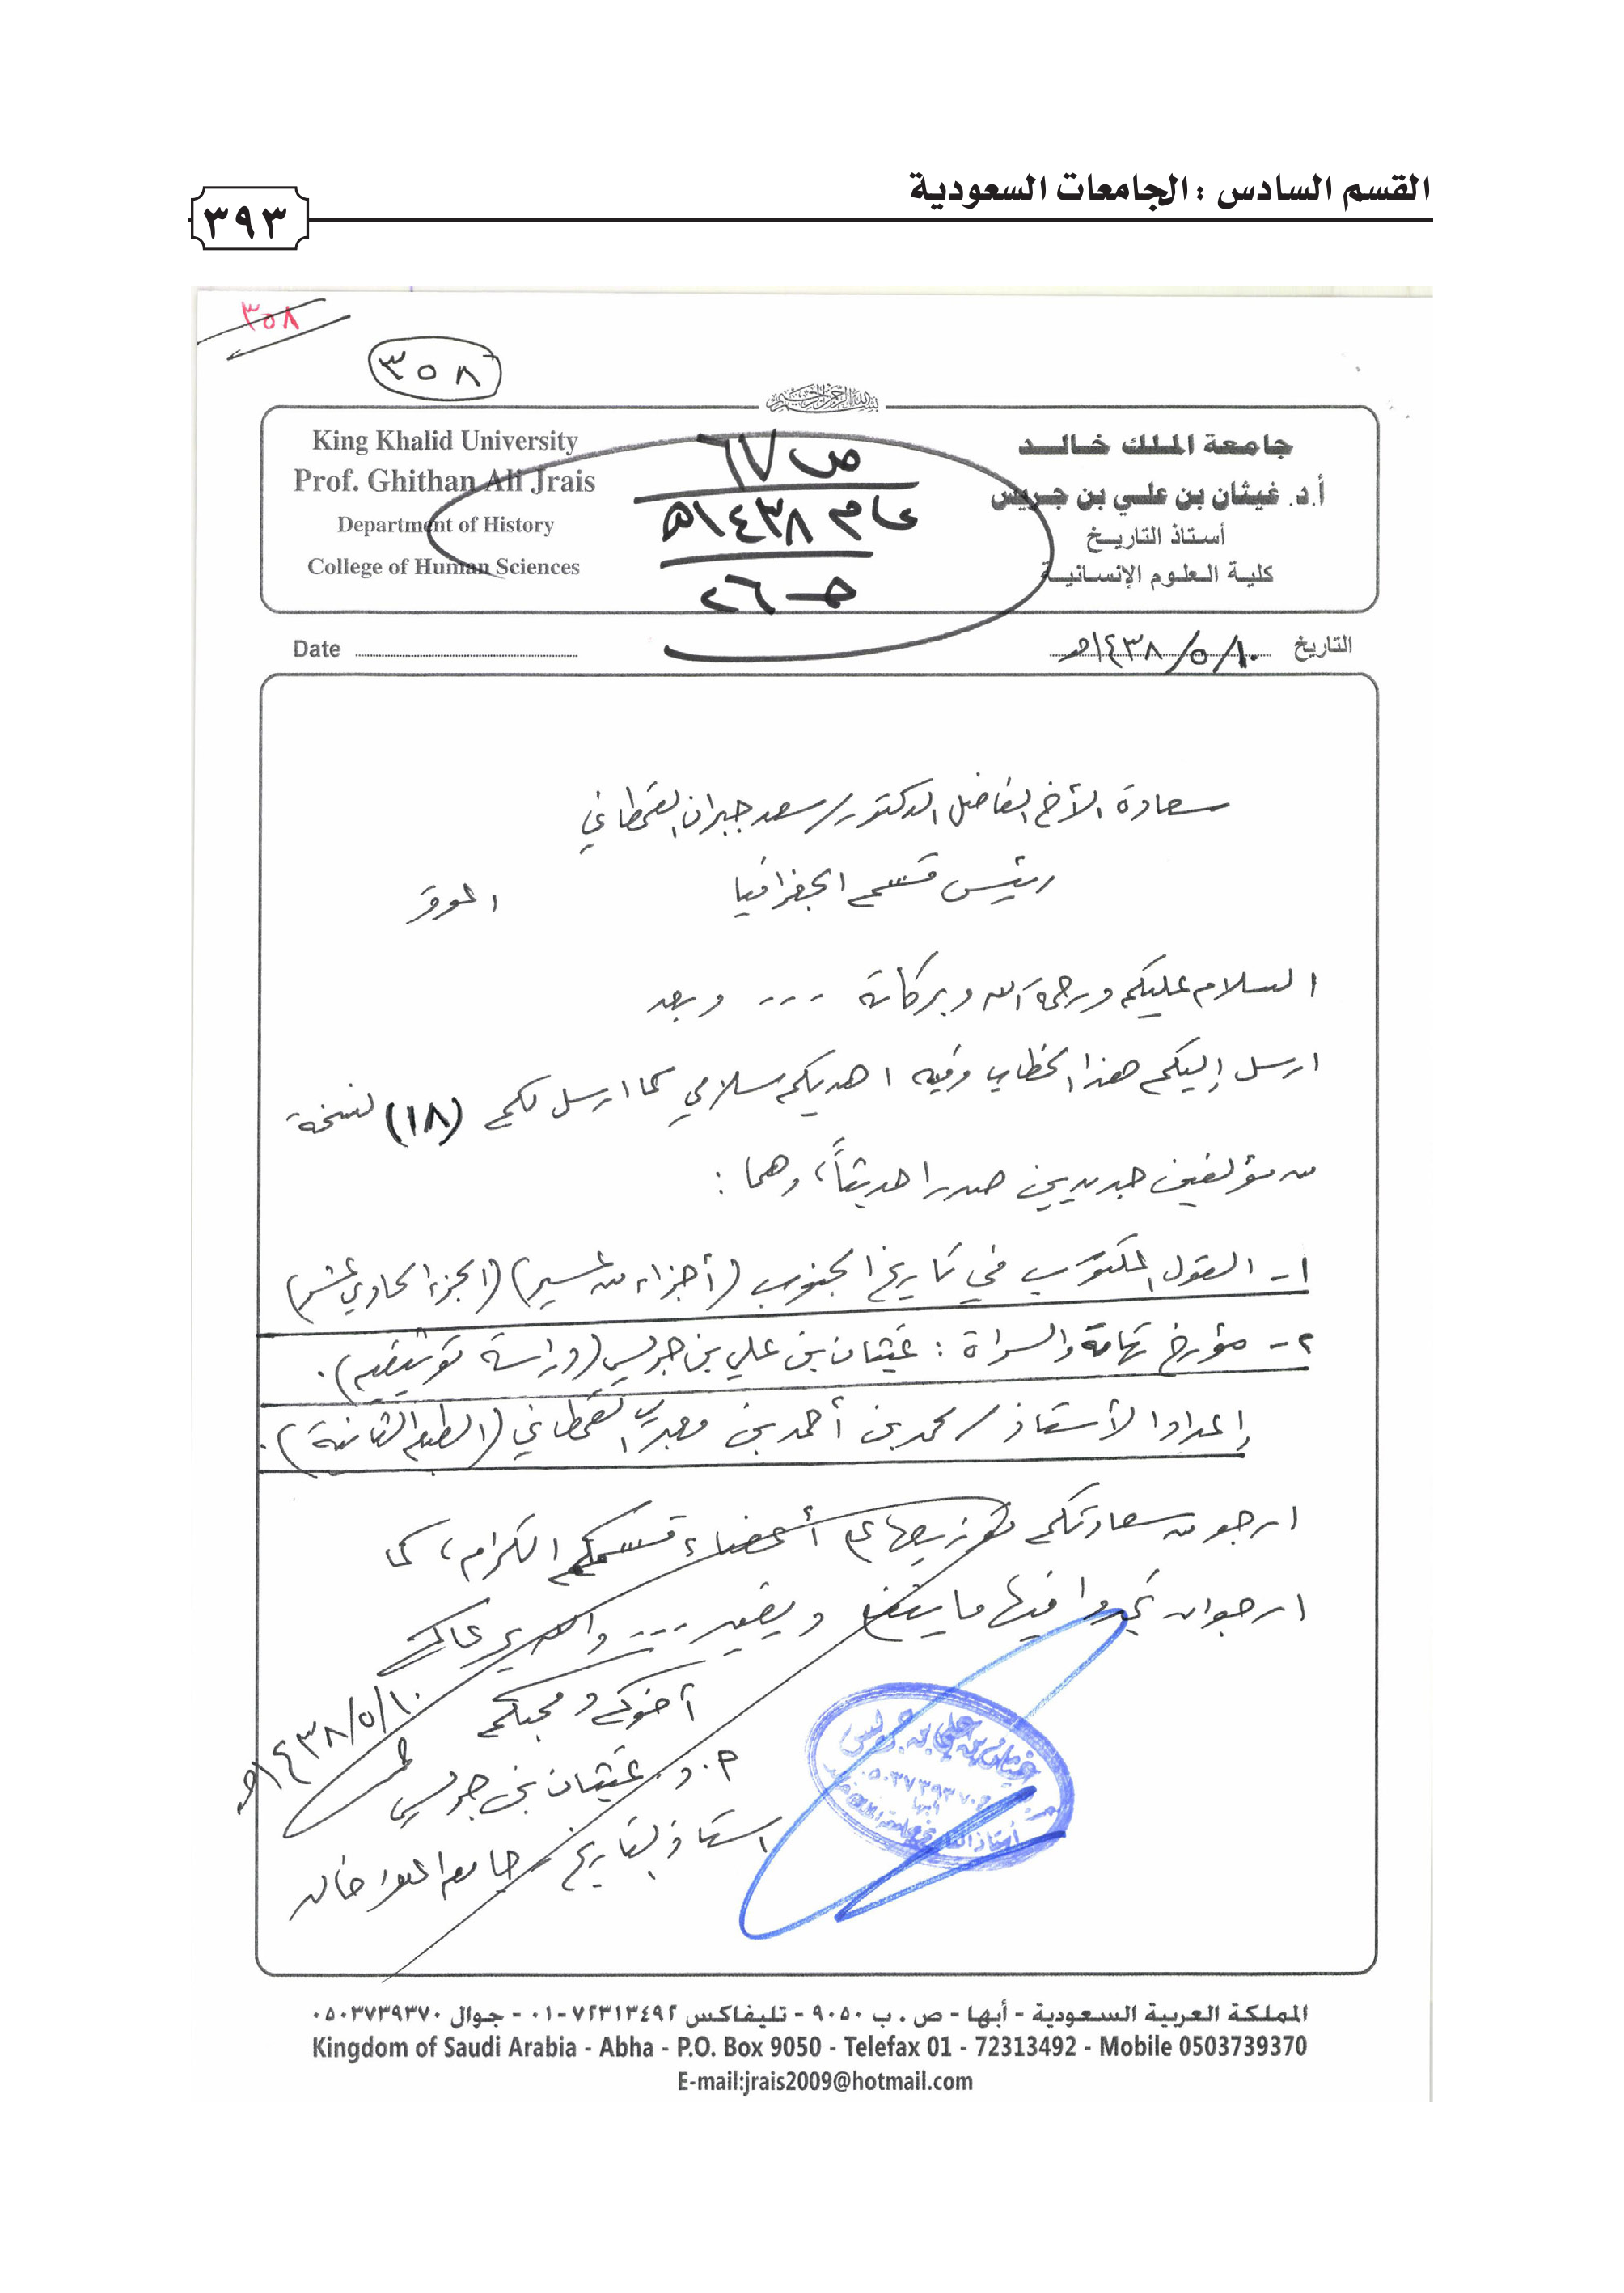 القسم السادس : الجامعات السعودية
٣٩٣
٣٥٨
٣٥٨
بسم الله الرحمن الرحيم
King Khalid University
Prof. Ghithan Ali Jrais
Department of History
College of Human Sciences
ص ٦٧
عام ١٤٣٨هـ
جـ ٢٦
جامعة الملك خالد
أ.د. غيثان بن علي بن جريس
أستاذ التاريخ
كلية العلوم الإنسانية
Date
التاريخ ١٠/٥/١٤٣٨هـ
سعادة الأخ الفاضل الدكتور/ سعد جبران القحطاني
رئيس قسم الجغرافيا الموقر
السلام عليكم ورحمة الله وبركاته ... وبعد
ارسل إليكم هذا الخطاب وفيه اهديكم سلامي كما ارسل لكم (١٨) نسخة
من مؤلفين جديدين صدرا حديثاً، وهما :
١- القول المكتوب في تاريخ الجنوب (أجزاء من عسير) (الجزء الحادي عشر)
٢- مؤرخ تهامة والسراة : غيثان بن علي بن جريس (دراسة توثيقية).
إعداد الأستاذ/ محمد بن أحمد بن معبر القحطاني (الطبعة الثانية).
ارجو من سعادتكم توزيعها على أعضاء قسمكم الكرام، كما
ارجو ان تجدوا فيها ما ينفع ويفيد ... والله يرعاكم
أخوكم ومحبكم
أ.د. غيثان بن جريس
استاذ التاريخ جامعة الملك خالد
١٠/٥/١٤٣٨هـ
غيثان بن علي بن جريس
٠٥٠٣٧٣٩٣٧٠
أبها
المملكة العربية السعودية - أبها - ص . ب ٩٠٥٠ - تليفاكس ٧٢٣١٣٤٩٢-٠١ - جوال ٠٥٠٣٧٣٩٣٧٠
Kingdom of Saudi Arabia - Abha - P.O. Box 9050 - Telefax 01 - 72313492 - Mobile 0503739370
E-mail:jrais2009@hotmail.com